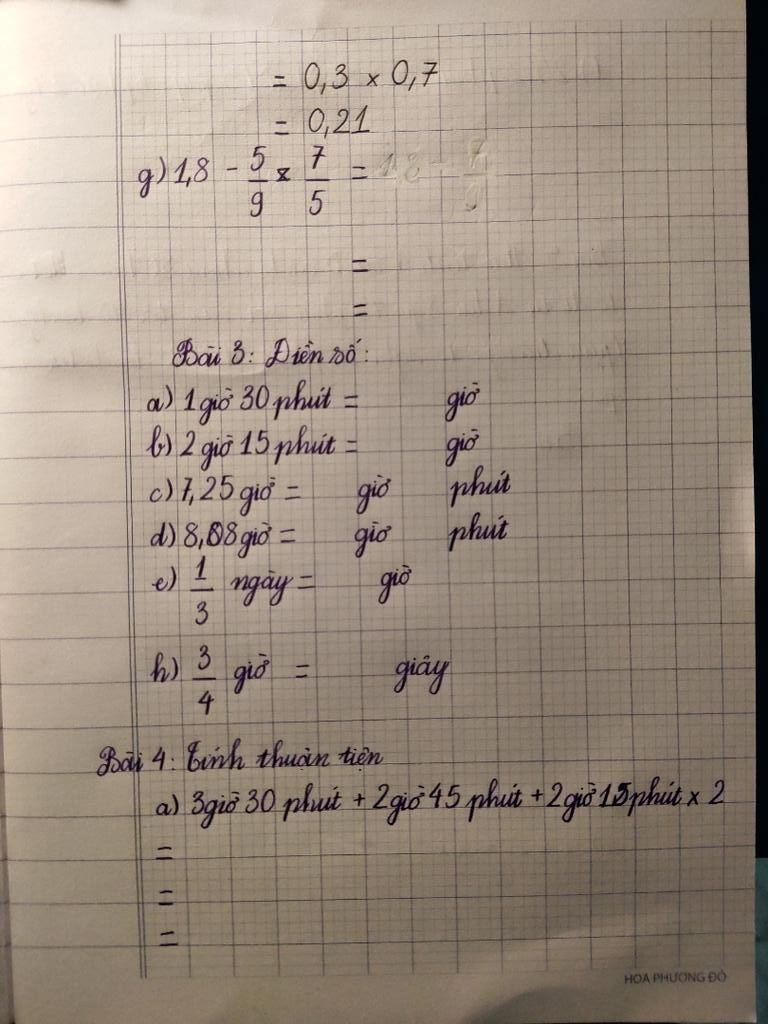 = 0,3 x 0,7
= 0,21
g) 1,8 - 5/9 x 7/5 = 1,8 - 7/9
=
=
Bài 3: Điền số:
a) 1 giờ 30 phút = giờ
b) 2 giờ 15 phút = giờ
c) 7,25 giờ = giờ phút
d) 8,08 giờ = giờ phút
e) 1/3 ngày = giờ
h) 3/4 giờ = giây
Bài 4: Tính thuận tiện
a) 3 giờ 30 phút + 2 giờ 45 phút + 2 giờ 15 phút x 2
=
=
=
HOA PHƯỢNG ĐỎ